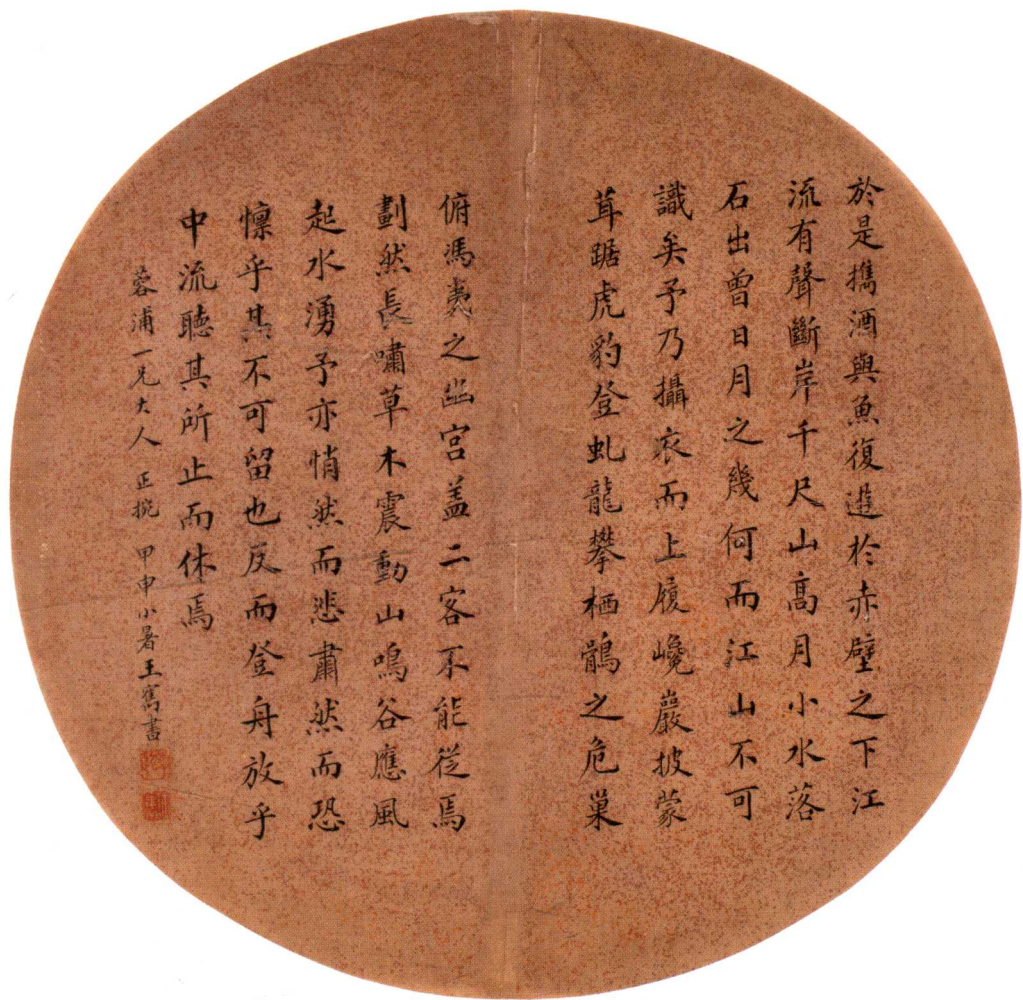 於是攜酒與魚復遊於赤壁之下江
流有聲斷岸千尺山高月小水落
石出曾日月之幾何而江山不可
識矣予乃攝衣而上履巉巖披蒙
茸踞虎豹登虬龍攀栖鶻之危巢
俯馮夷之幽宮盖二客不能從焉
劃然長嘯草木震動山鳴谷應風
起水湧予亦悄然而悲肅然而恐
懍乎其不可留也反而登舟放乎
中流聽其所止而休焉
蓉浦一兄大人 正擥 甲申小暑王寯書